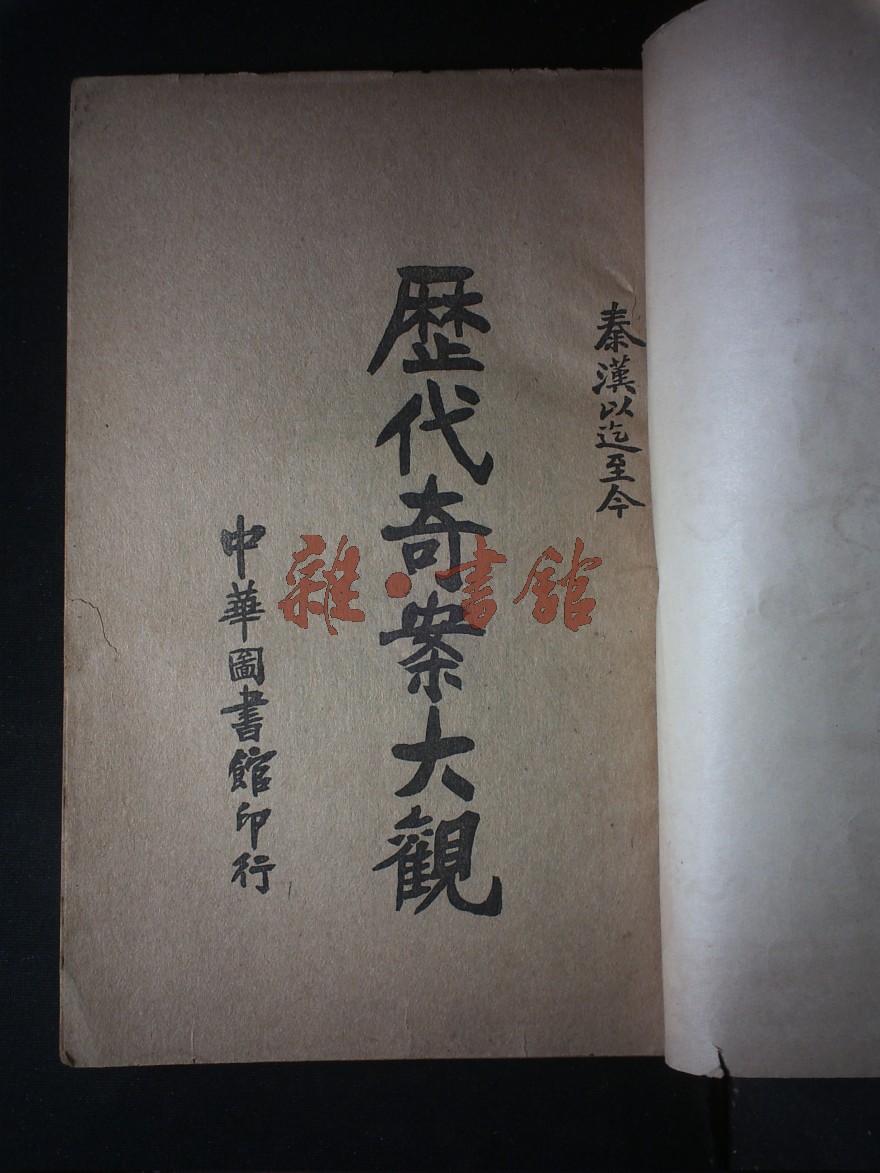 秦漢以迄至今
歷代奇案大觀
中華圖書館印行
雜·書館